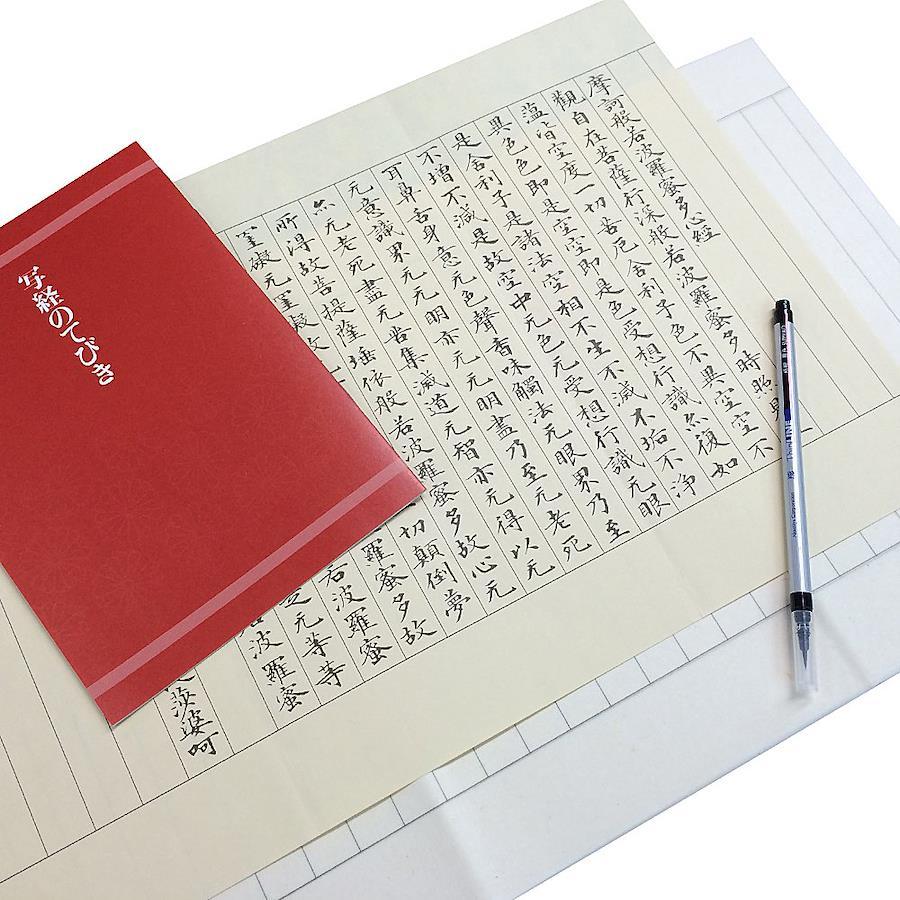 写経のてびき
摩訶般若波羅蜜多心経
觀自在菩薩行深般若波羅蜜多時照見
蘊皆空度一切苦厄舎利子色不異空空不
異色色即是空空即是色受想行識亦復如
是舎利子是諸法空相不生不滅不垢不浄
不増不減是故空中无色无受想行識无眼
耳鼻舌身意无色聲香味觸法无眼界乃至
无意識界无无明亦无无明盡乃至无老死
亦无老死盡无苦集滅道无智亦无得以无
所得故菩提薩埵依般若波羅蜜多故心无
罣礙无罣礙故
切顛倒夢
羅蜜多故
若波羅蜜
无等等
波羅蜜
婆呵